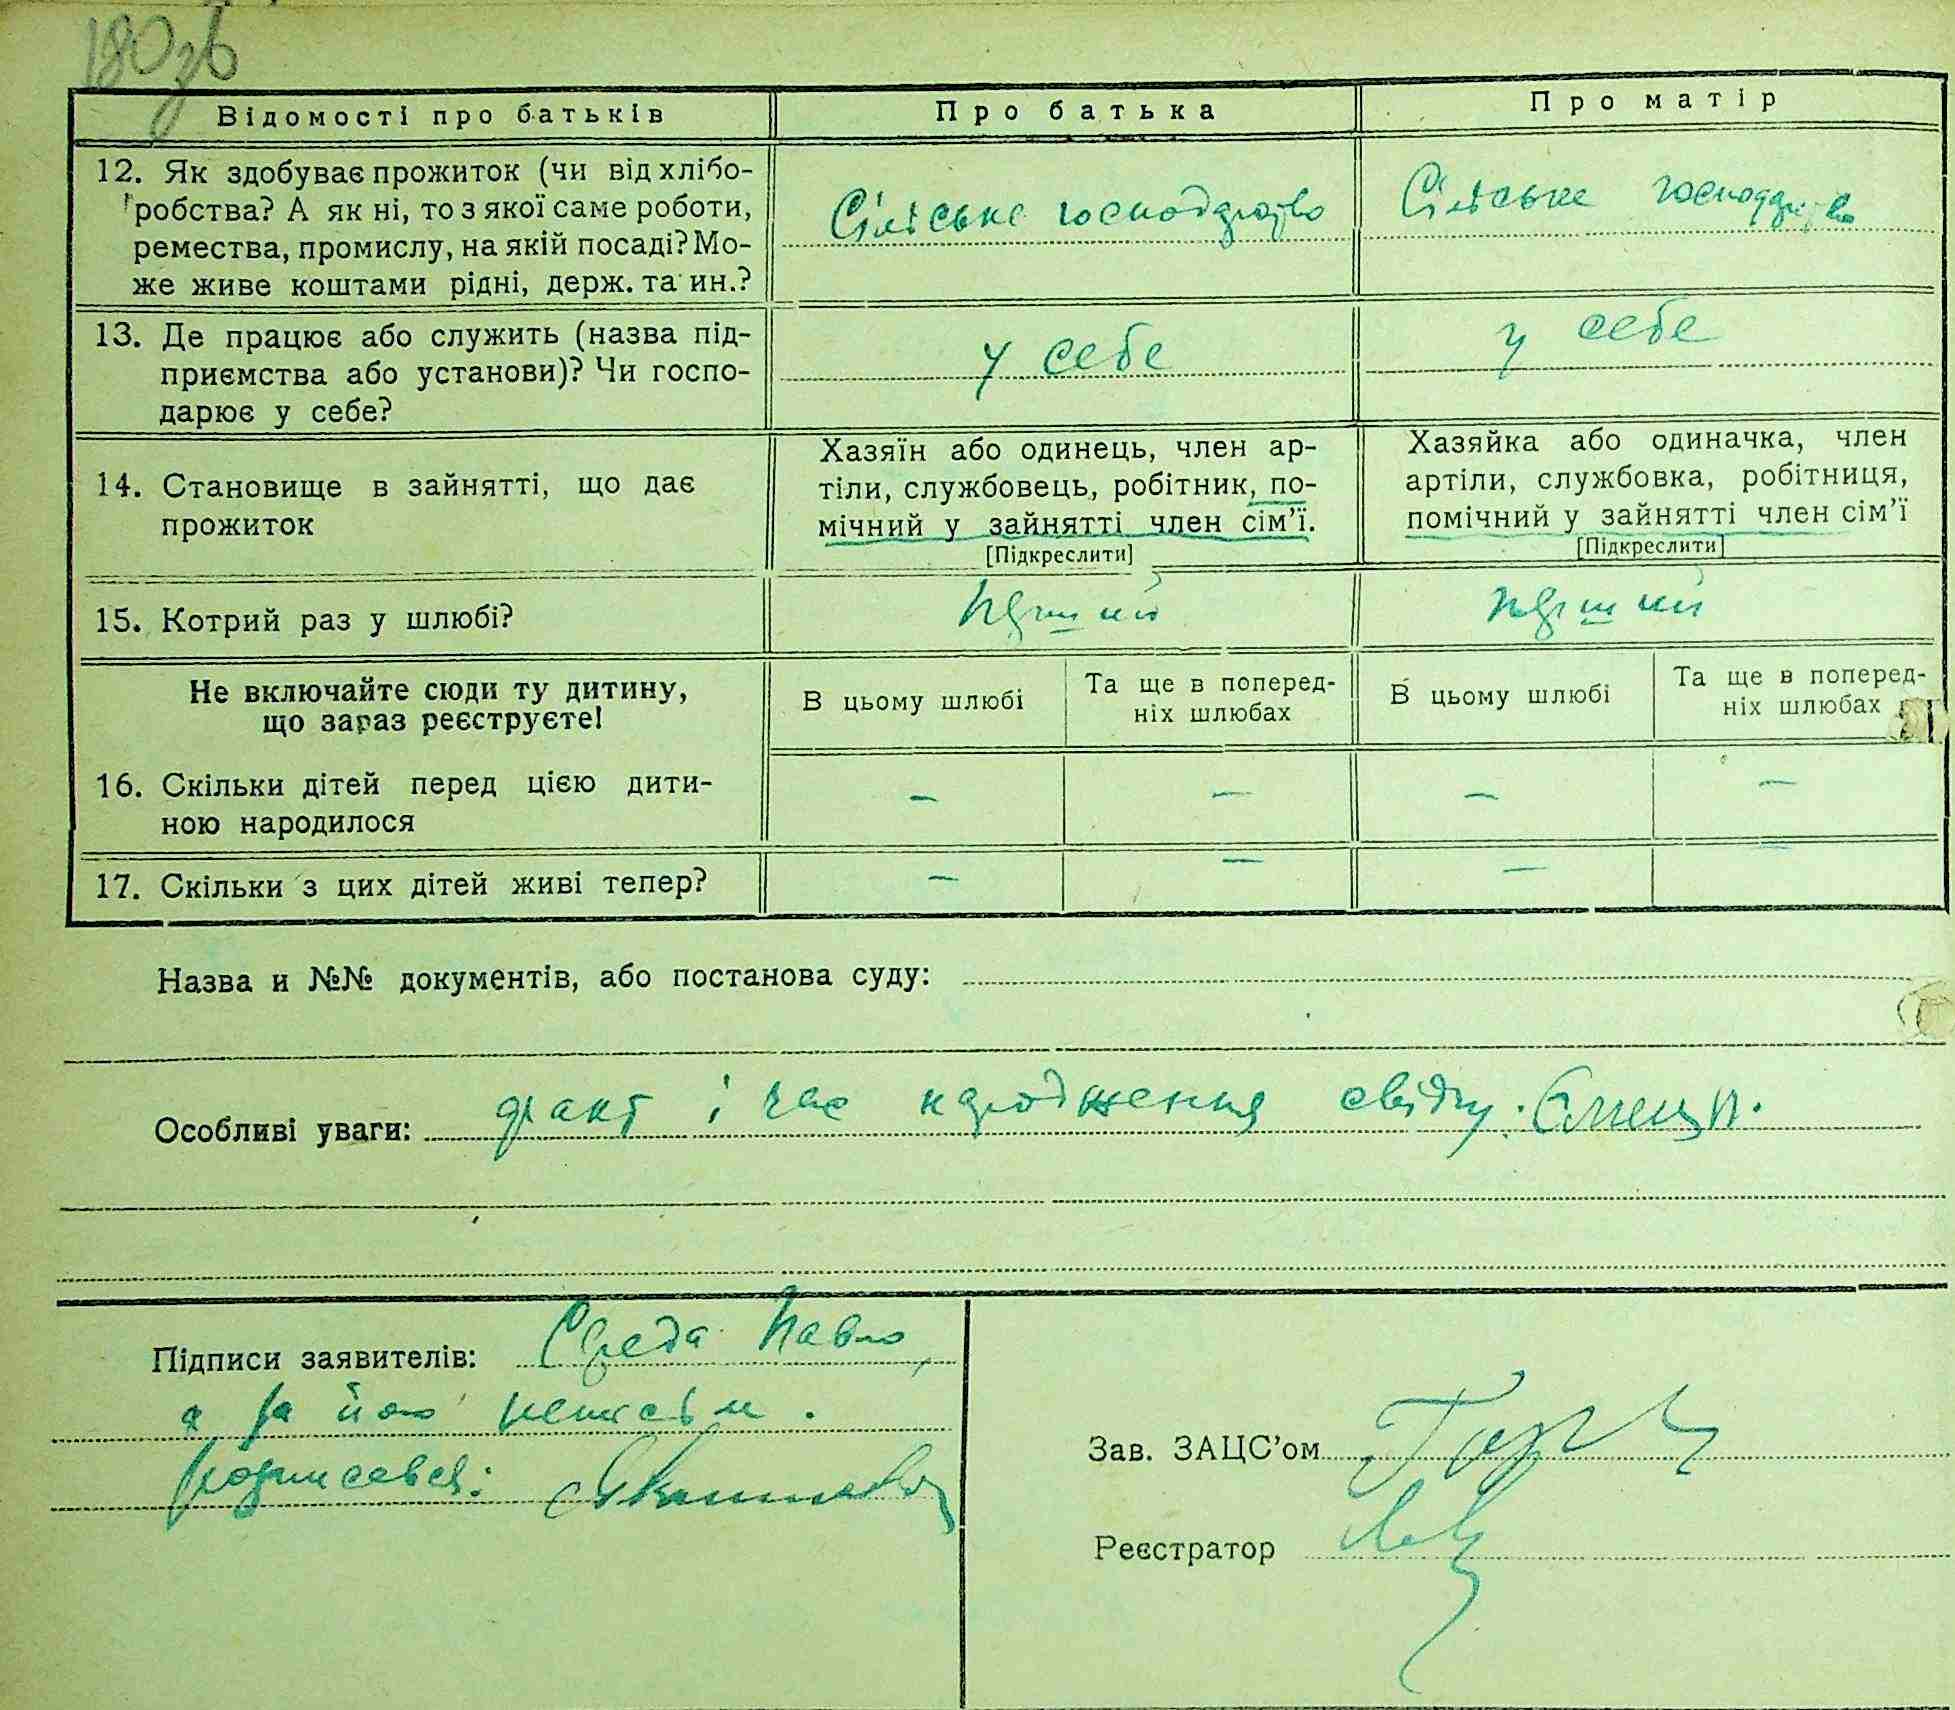 180 зв
Відомості про батьків
Про батька
Про матір
12. Як здобуває прожиток (чи від хлібо-
робства? А як ні, то з якої саме роботи,
ремества, промислу, на якій посаді? Мо-
же живе коштами рідні, держ. та ин.?
Сільське господарство
Сільське господарство
13. Де працює або служить (назва під-
приємства або установи)? Чи госпо-
дарює у себе?
у себе
у себе
14. Становище в зайнятті, що дає
прожиток
Хазяїн або одинець, член ар-
тіли, службовець, робітник, по-
мічний у зайнятті член сім'ї.
[Підкреслити]
Хазяйка або одиначка, член
артіли, службовка, робітниця,
помічний у зайнятті член сім'ї
[Підкреслити]
15. Котрий раз у шлюбі?
перший
перший
Не включайте сюди ту дитину,
що зараз реєструєте!
В цьому шлюбі
Та ще в поперед-
ніх шлюбах
В цьому шлюбі
Та ще в поперед-
ніх шлюбах
16. Скільки дітей перед цією дити-
ною народилося
– – – –
17. Скільки з цих дітей живі тепер?
– – – –
Назва и №№ документів, або постанова суду:
Особливі уваги: факт і час народження свідч.
Підписи заявителів: Середа Павло,
а за його неписьм.
розписався:
Зав. ЗАЦС'ом
Реєстратор